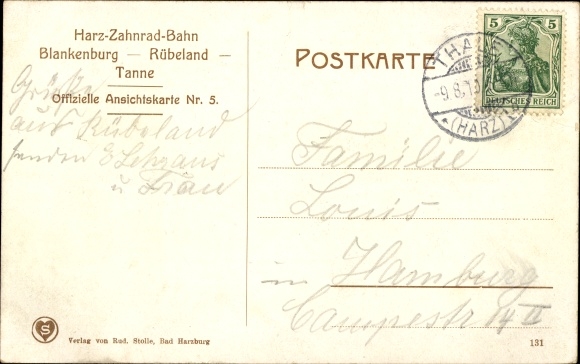 Harz-Zahnrad-Bahn
Blankenburg — Rübeland —
Tanne
Offizielle Ansichtskarte Nr. 5.
POSTKARTE
5 5
DEUTSCHES REICH
THALE
-9.8.13
*(HARZ)
Grüße
aus Rübeland
senden
u Frau
Familie
Louis
in Hamburg
Campestr 14 II
S
Verlag von Rud. Stolle, Bad Harzburg
131